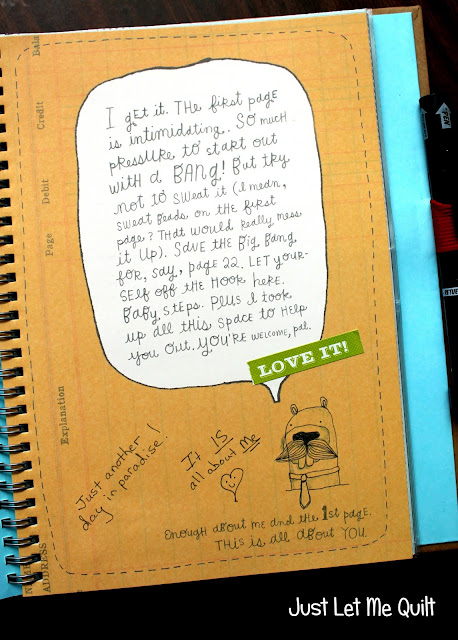 Bala
Credit
Debit
Page
Explanation
ADDRESS
I get it. The first page
is intimidating.. So much
pressure to start out
with a BANG! But try
not to sweat it (I mean,
sweat beads on the first
page? That would really mess
it up). Save the big bang
for, say, page 22. Let your-
self off the hook here.
Baby steps. Plus I took
up all this space to help
you out. You're welcome, pal.
LOVE IT!
Just another
day in paradise!
It IS
all about Me
Enough about me and the 1st page.
This is all about YOU.
Just Let Me Quilt